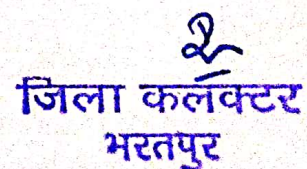 जिला कलॅक्टर
भरतपुर